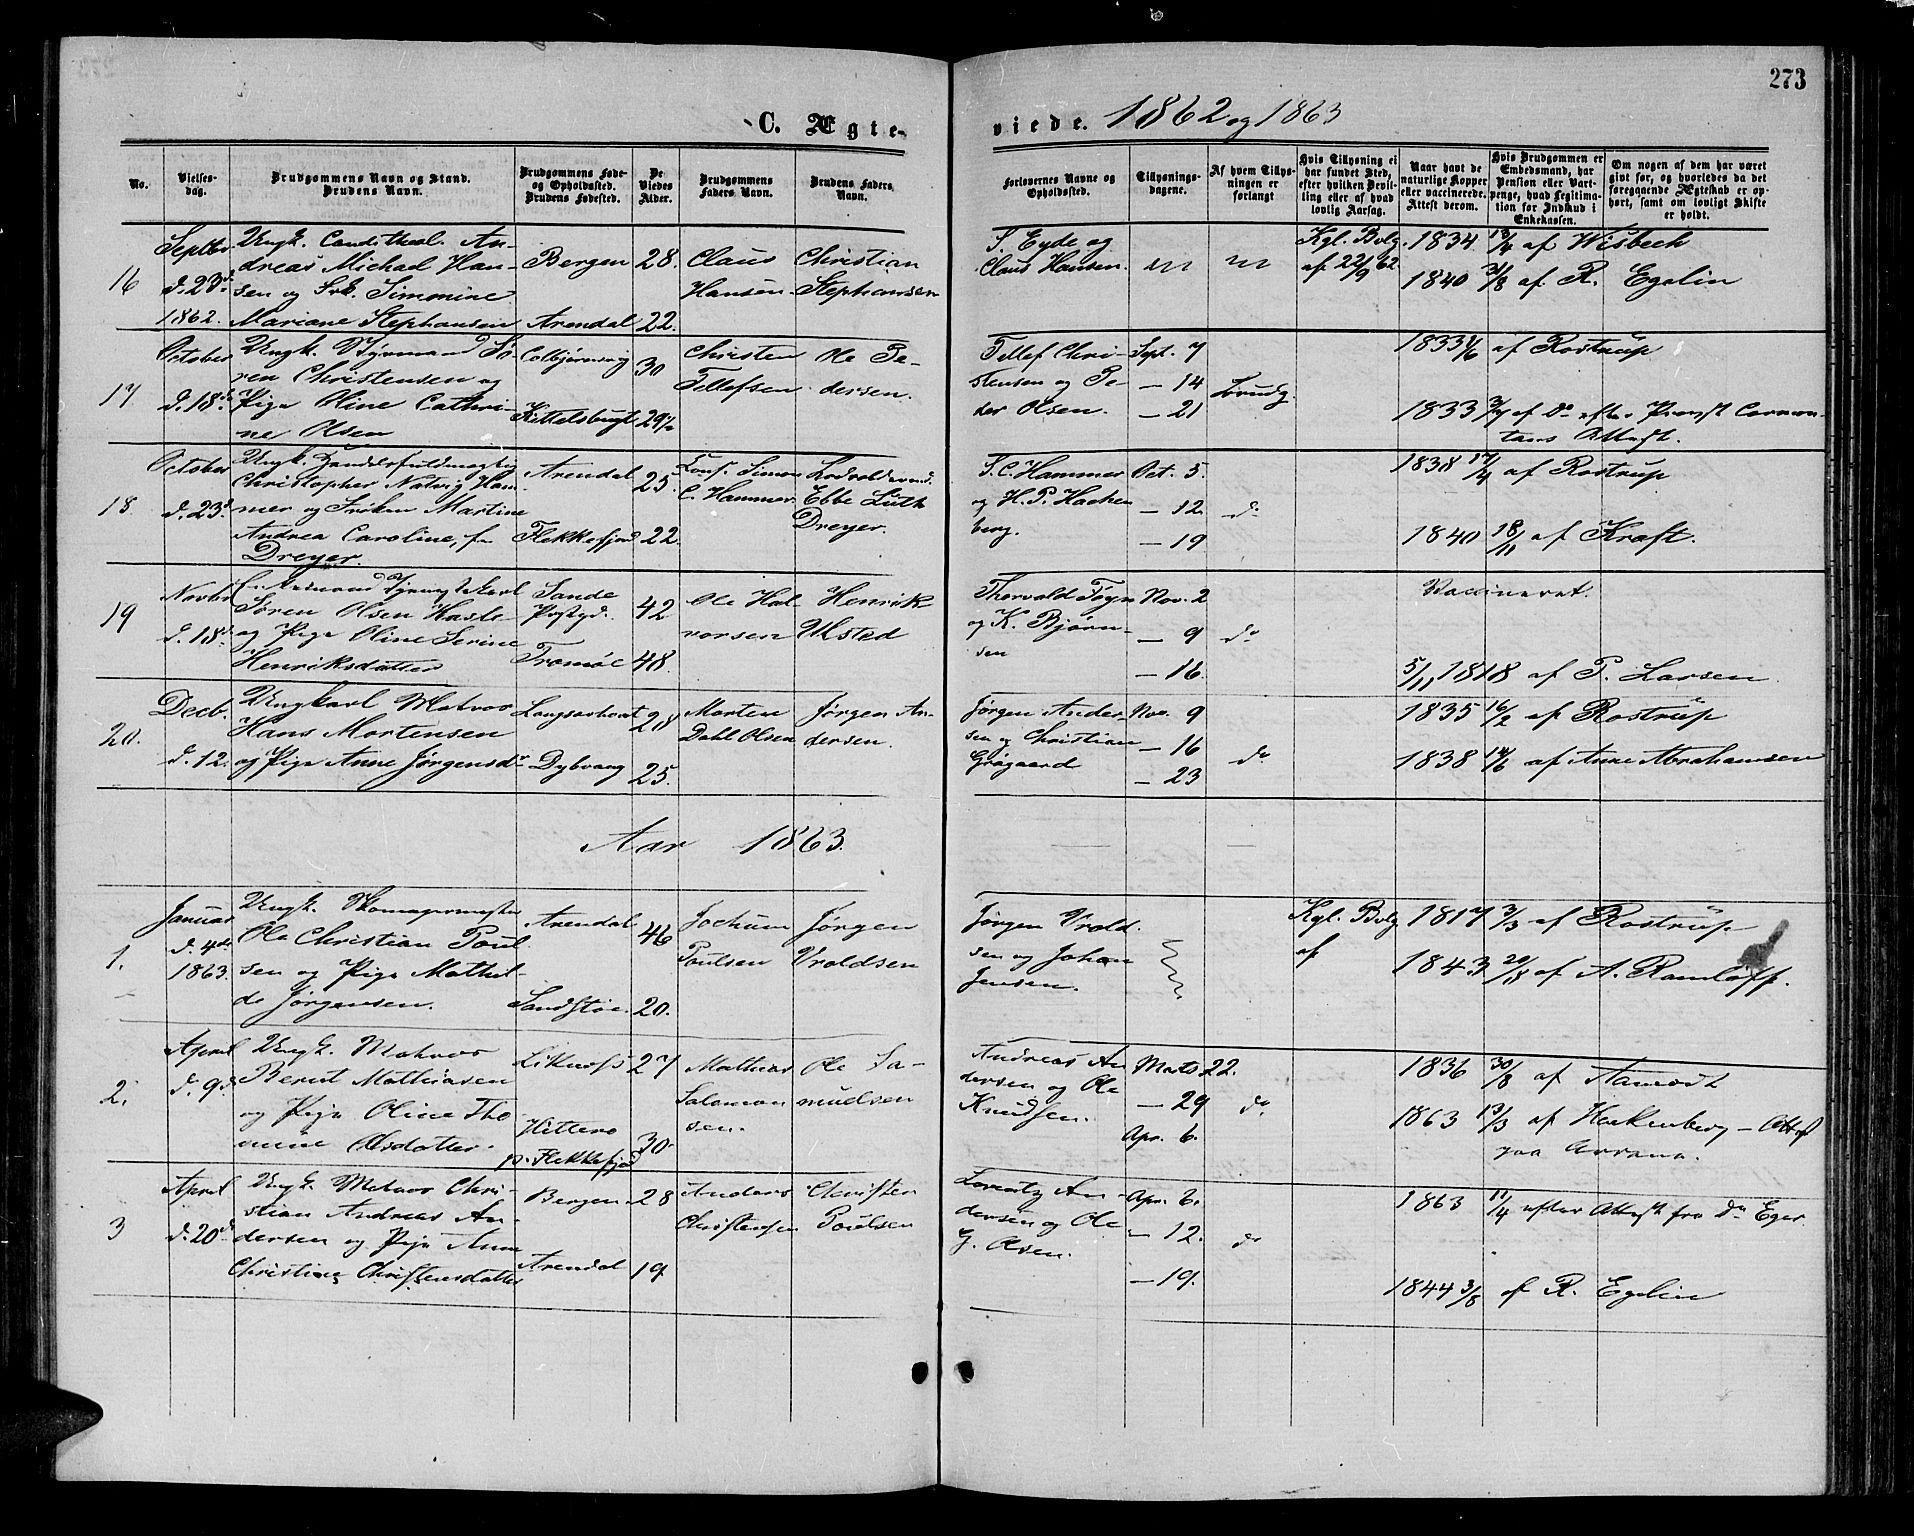 273
C. Ægte-
viede. 1862 og 1863
No.
Vielses-
dag.
Brudgommens Navn og Stand.
Brudens Navn.
Brudgommens Føde-
og Opholdssted.
Brudens Fødested.
De
Viedes
Alder.
Brudgommens
Faders Navn.
Brudens Faders
Navn.
Forlovernes Navne og
Opholdssted.
Tillysnings-
dagene.
Af hvem Tillys-
ningen er
forlangt
Hvis Tillysning ei
har fundet Sted,
efter hvilken Bevil-
ling eller af hvad
lovlig Aarsag.
Naar havt de
naturlige Kopper
eller vaccinerede.
Attest derom.
Hvis Brudgommen er
Embedsmand, har
Pension eller Vart-
penge, hvad Legitima-
tion for Indskud i
Enkekassen.
Om nogen af dem har været
givt før, og hvorledes da det
foregaaende Ægteskab er op-
hørt, samt om lovligt Skifte
er holdt.
16
Septbr
d. 23d
1862.
Ungk. Cand. theol. An-
dreas Michael Han-
sen og Frk. Simonine
Mariane Stephansen
Bergen
Arendal
28.
22.
Claus
Hansen
Christian
Stephansen
S. Eyde og
Claus Hansen.
Kgl. Bvlg.
af 22/9 62
1834 13/9 af Wisbech
1840 3/8 af R. Egelin
17
October
d. 18d
Ungk. Styrmand Sø-
ren Christensen og
Pige Oline Cathri-
ne Olsen
Colbjørnsvig
Kittelsbugt
30
29½
Christen
Tellefsen
Ole Pe-
dersen.
Tellef Chri-
stensen og Pe-
der Olsen.
Sept. 7
— 14
— 21
Brudg.
1833 4/6 af Rostrup
1833 3/7 af do efter Provst
Attest.
18.
October
d. 23d
Ungk. Handelsfuldmægtig
Christopher Natvig Ham-
mer og Frøken Martine
Andrea Caroline, f.
Dreyer.
Arendal
Flekkefjord
25.
22.
Cons. Simon
C. Hammer
Ebbe Lüth
Dreyer.
S. C. Hammer
og H. P. Hacken
berg.
Oct. 5.
— 12.
— 19
do
1838 17/4 af Rostrup
1840 18/11 af Kraft.
19
Novbr
d. 18d
Enkemand
Søren Olsen Haste-
og Pige Oline Serine
Henriksdatter
Sande
Præstgd.
Tromøe
42
48.
Ole Hal-
vorsen
Henrik
Ulsted
Thorvald Foyn
og K. Bjørn-
sen
Nov. 2
— 9
— 16.
do
Vaccineret.
5/11 1818 af P. Larsen
20.
Decb.
d. 12.
Ungkarl Matros
Hans Mortensen
og Pige Anne Jørgensd
Langsævheat
Dybvaag
28
25.
Morten
Dahl Olsen
Jørgen An-
dersen.
Jørgen Ander
sen og Christian
Grøgaard
Nov. 9
— 16
— 23
do
1835 16/2 af Rostrup
1838 14/6 af Anne Abrahamsen
Aar 1863.
1.
Januar
d. 4de
1863.
Ungk. Skomagermester
Ole Christian Poul
sen og Pige Mathil-
de Jørgensen.
Arendal
Sandstøe.
46
20.
Jochum
Poulsen
Jørgen
Vroldsen
Jørgen Vrold.
sen og Johan
Jensen.
Kgl. Bvlg
af
1817 3/3 af Rostrup
1843 20/8 af A. Ramløff.
2.
April
d. 9de
Ungk. Matros
Bernt Mathiasen
og Pige Oline Tho
mine Olsdatter.
Liknæss
Hitterø
p. Flekkefjord
27
30.
Mathias
Salomon
sen.
Ole Sa-
muelsen
Andreas An
dersen og Ole
Knudsen.
Marts 22.
— 29
Apr. 6.
do
1836 30/8 af Aamodt
1863 13/3 af Hackenberg — Attest
paa
3
April
d. 20d
Ungk. Matros Chri-
stian Andreas An-
dersen og Pige Anne
Christine Christensdatter
Bergen
Arendal
28
19.
Anders
Christensen
Christen
Poulsen
Lorentz An-
dersen og Ole
G. Olsen.
Apr. 6.
— 12.
— 19.
do
1863 11/4 efter Attest fra Dr Eger.
1844 3/8 af R. Egelin